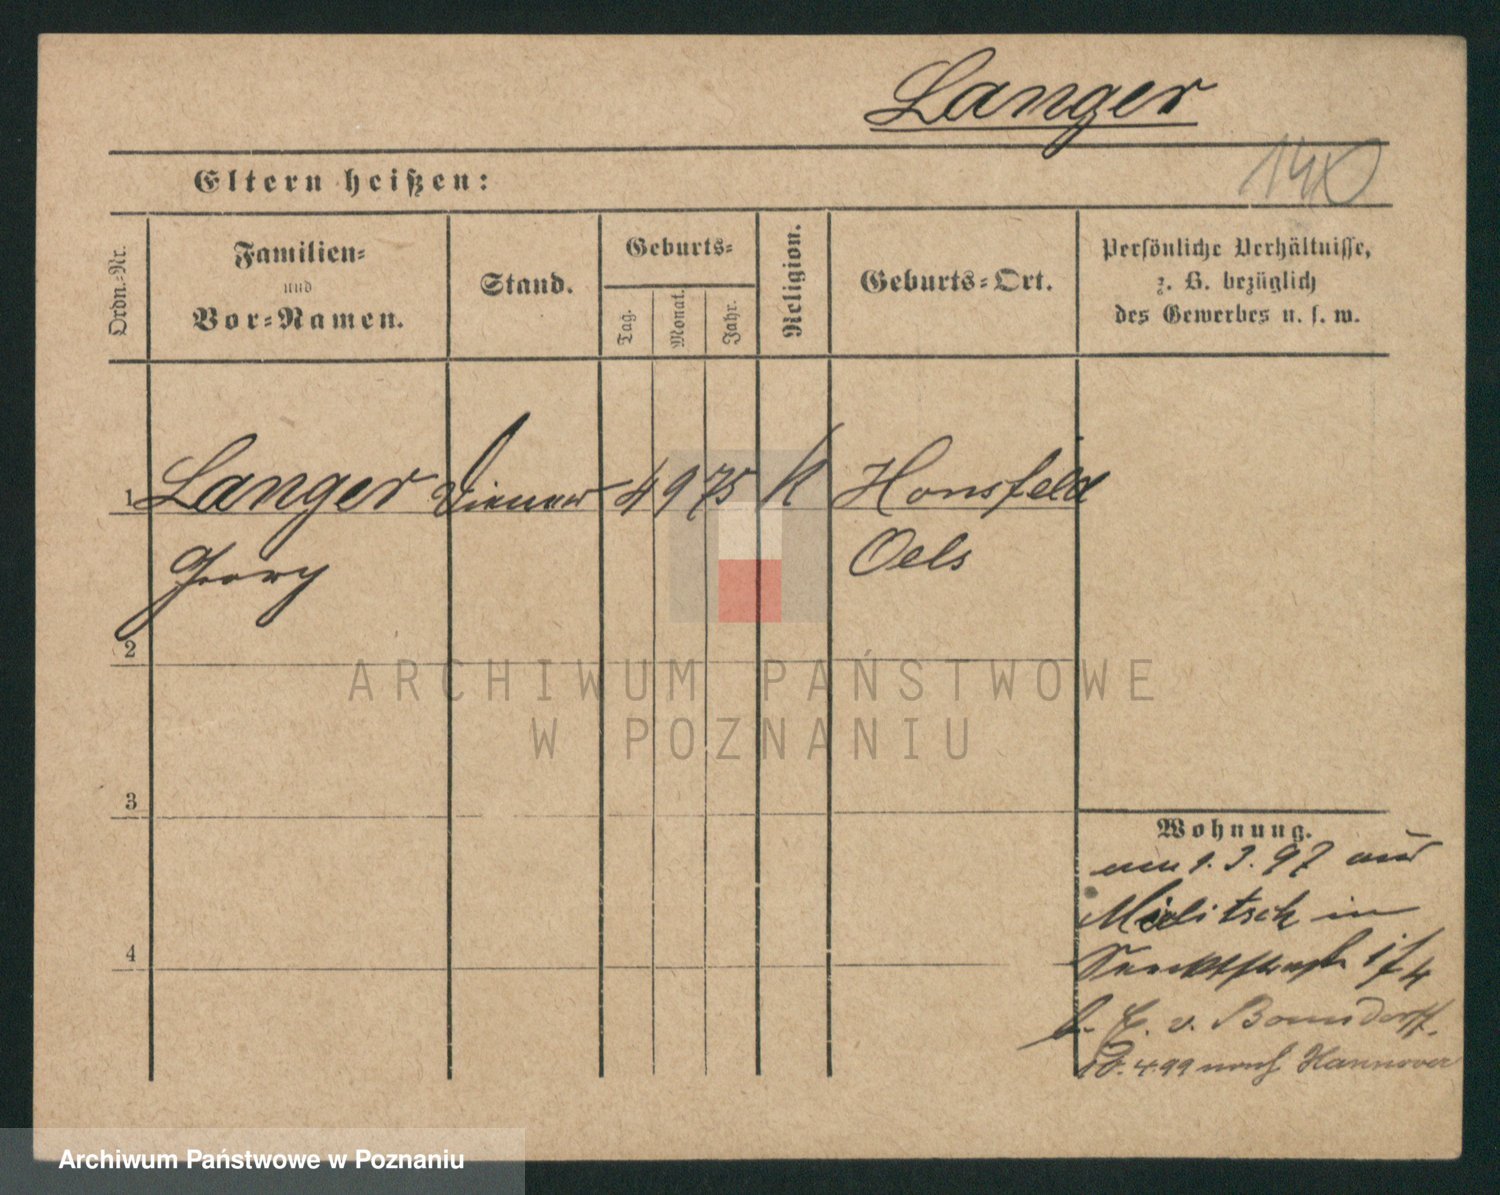 Langer
140
Eltern heißen:
Ordn.-Nr.
Familien-
und
Vor-Namen.
Stand.
Geburts-
Tag.
Monat.
Jahr.
Religion.
Geburts-Ort.
Persönliche Verhältnisse,
z. B. bezüglich
des Gewerbes u. s. w.
1 Langer Diener 4 9 75 K Honsfeld
Georg Oels
2
3
4
Wohnung.
am 1.3.97 aus
Militsch in
17/4
b. E. v. Bonsdorff.
4 99 nach Hannover
ARCHIWUM PAŃSTWOWE
W POZNANIU
Archiwum Państwowe w Poznaniu